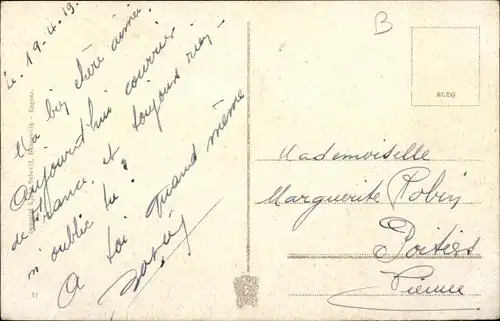 le 19-4-19.
Ma bien chère aimée.
Aujourd'hui courrier
de France, et toujours rien -
m'oublie tu ?
A toi quand même
B
BLEG
Mademoiselle
Marguerite Robin
Poitiers
Vienne